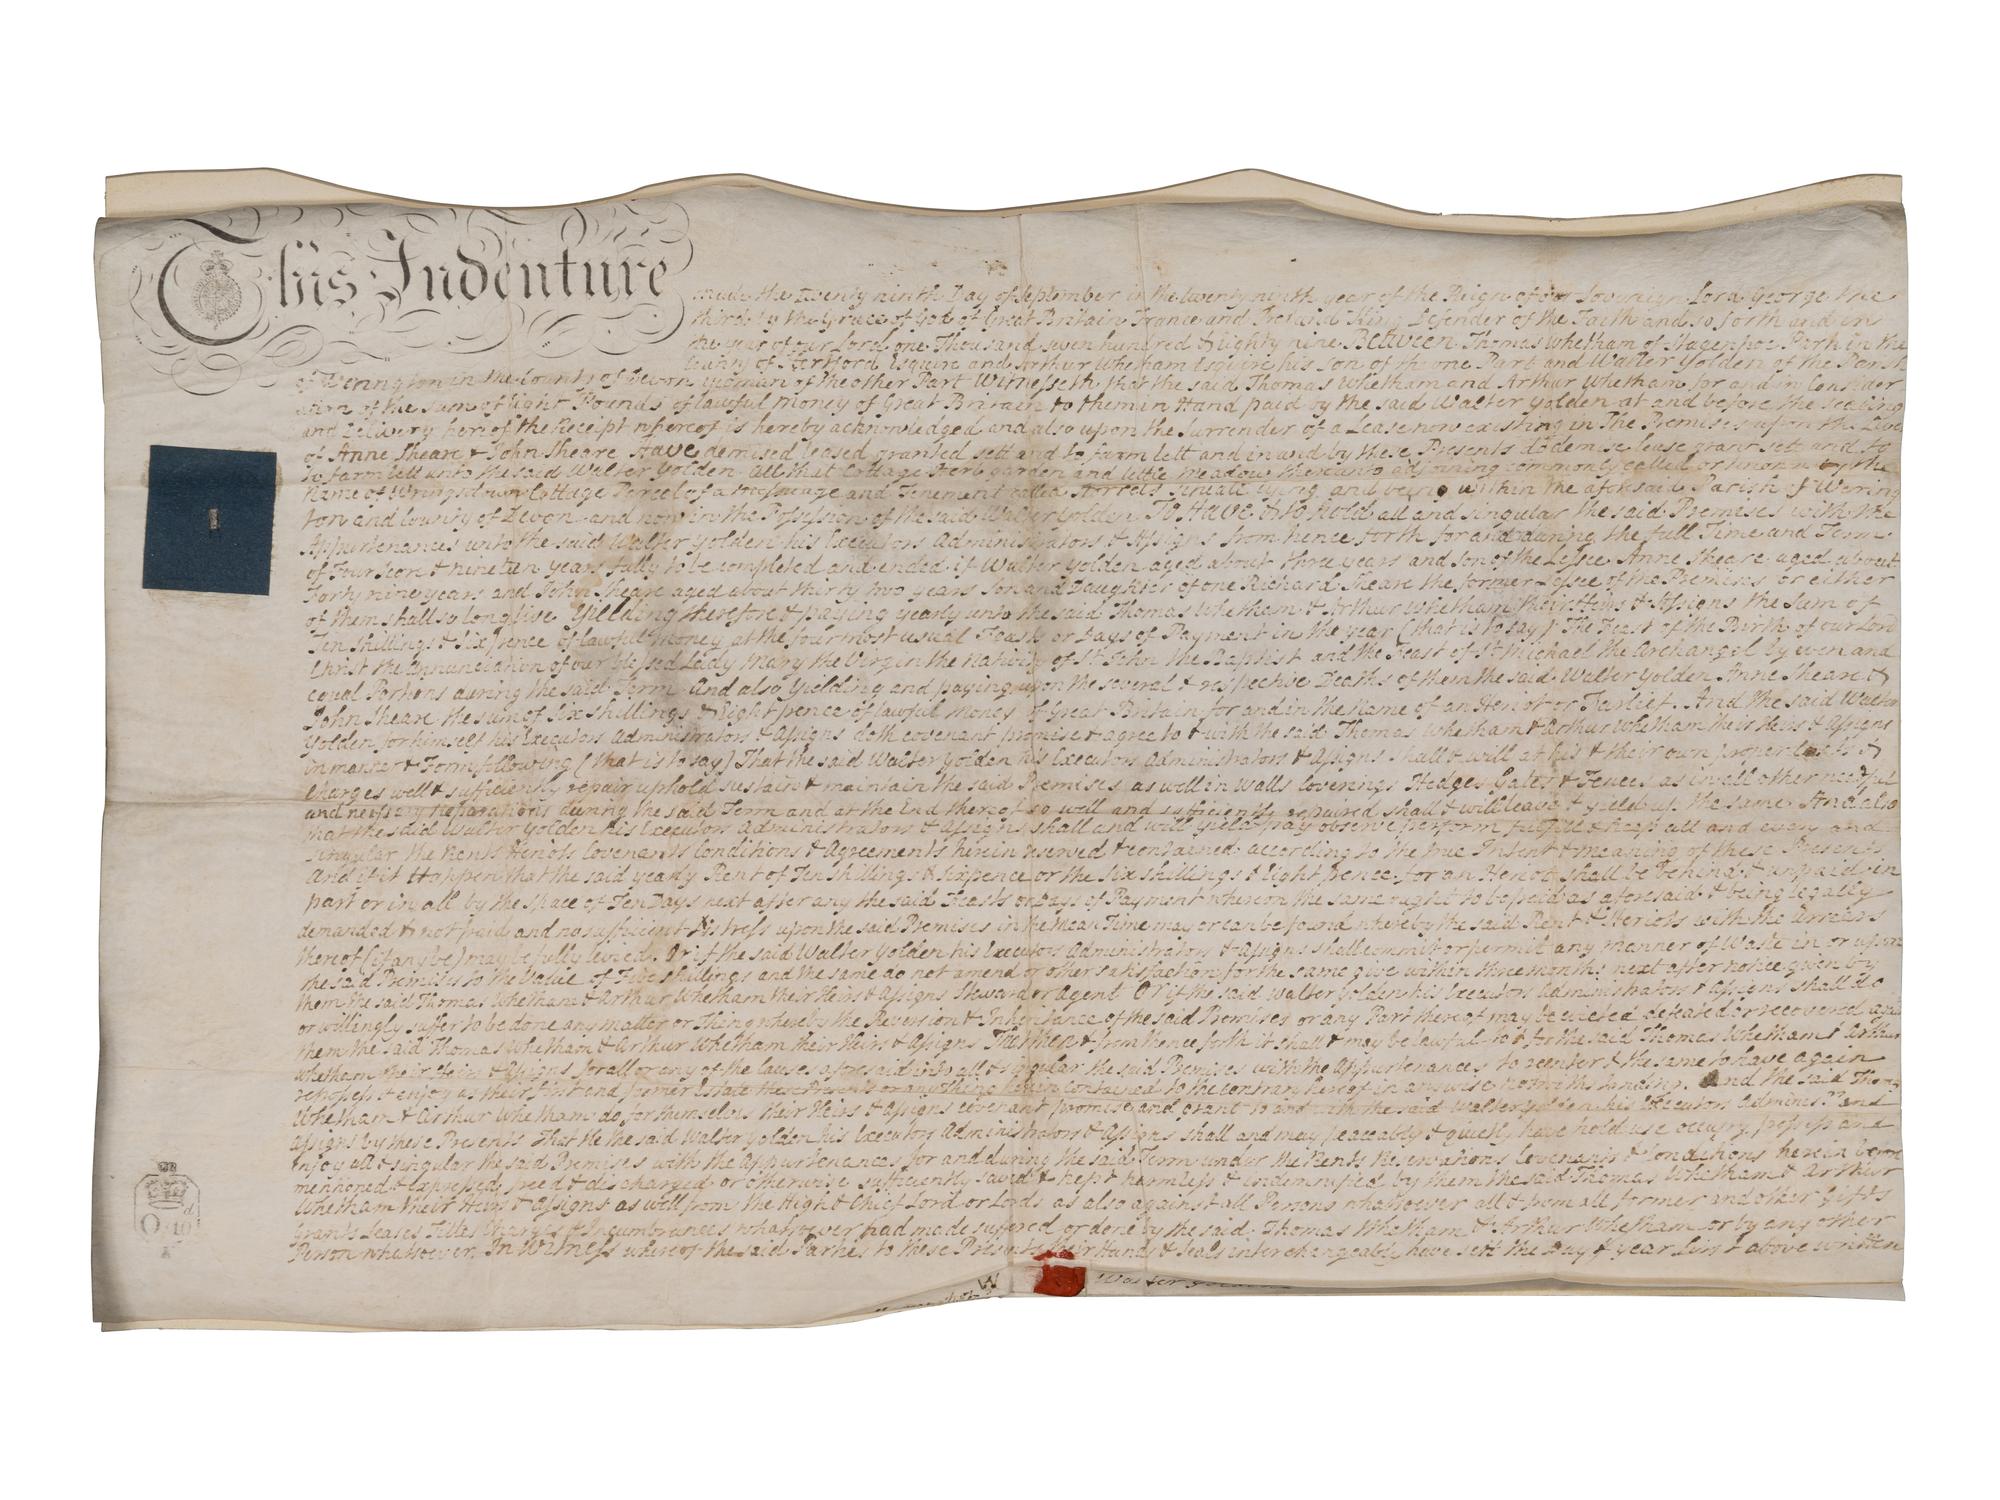 This Indenture
made the twenty ninth Day of September in the twenty ninth year of the Reign of our Sovereign Lord George the
third by the Grace of God of Great Britain France and Ireland King Defender of the Faith and so forth and in
the year of our Lord one Thousand seven hundred & Eighty nine Between Thomas Whetham of Stagenhoe Park in the
County of Hertford Esquire and Arthur Whetham Esquire his Son of the one Part and Walter Yolden of the Parish
of Werington in the County of Devon yeoman of the other Part Witnesseth that the said Thomas Whetham and Arthur Whetham for and in Consider
ation of the sum of Eight Pounds of lawful Money of Great Britain to them in Hand paid by the said Walter Yolden at and before the sealing
and Delivery hereof the Receipt whereof is hereby acknowledged and also upon the Surrender of a Lease now existing in The Premises upon the Lives
of Anne Sheare & John Sheare Have demised leased granted sett and to farm lett and in and by these Presents do demise lease grant sett and to
to farm lett unto the said Walter Yolden all that Cottage Herb garden and little meadow thereunto adjoining commonly called or known by the
Name of Wringsdown Cottage Parcel of a Messuage and Tenement called lying and being within the aforesaid Parish of Wering
ton and County of Devon and now in the Possession of the said Walter Yolden To Have & to hold all and singular the said Premises with the
Appurtenances unto the said Walter Yolden his Executors Administrators & Assigns from hence forth for and during the full Time and Term
of Four Score & nineteen years fully to be completed and ended if Walter Yolden aged about three years and son of the Lessee Anne Sheare aged about
Forty nine years and John Sheare aged about thirty two years Son and Daughter of one Richard Sheare the former Lessee of the Premises or either
of them shall so long live Yielding therefore & paying yearly unto the said Thomas Whetham & Arthur Whetham their Heirs & Assigns the Sum of
Ten shillings & six pence of lawful Money at the four most usual Feasts or Days of Payment in the year (that is to say) The Feast of the Birth of our Lord
Christ the Annunciation of our Blessed Lady Mary the Virgin the Nativity of St John the Baptist and the Feast of St Michael the Archangel by even and
equal Portions during the said Term And also Yielding and paying upon the several & respective Deaths of them the said Walter Yolden Anne Sheare &
John Sheare the sum of Six shillings & Eight pence of lawful Money of Great Britain for and in the name of an Heriot or Farlief. And the said Walter
Yolden for himself his Executors Administrators & Assigns doth covenant promise & agree to & with the said Thomas Whetham & Arthur Whetham their Heirs & Assigns
in manner & Form following (that is to say) That the said Walter Yolden his Executors Administrators & Assigns shall & will at his & their own proper Costs &
Charges well & sufficiently repair uphold sustain & maintain the said Premises as well in Walls Coverings Hedges Gates & Fences as in all other needful
and necessary Reparations during the said Term and at the End thereof so well and sufficiently repaired shall & will leave & yield up the same And also
that the said Walter Yolden his Executors Administrators & Assigns shall and will yield pay observe perform fulfill & keep all and every and
singular the Rents Heriots Covenants Conditions & Agreements herein reserved & contained according to the true Intent & meaning of these Presents
And if it Happen that the said yearly Rent of Ten shillings & Sixpence or the six shillings & Eight pence for an Heriot shall be behind & unpaid in
part or in all by the space of Ten Days next after any the said Feasts or Days of Payment whereon the same ought to be paid as aforesaid & being legally
demanded & not paid and no sufficient Distress upon the said Premises in the Mean Time may or can be found whereby the said Rent & Heriots with the Arrears
thereof (if any be) may be fully levied. Or if the said Walter Yolden his Executors Administrators & Assigns shall commit or permit any manner of Waste in or upon
the said Premises to the Value of Five shillings and the same do not amend or other satisfaction for the same give within three months next after notice given by
them the said Thomas Whetham & Arthur Whetham their Heirs & Assigns Steward or Agent Or if the said Walter Yolden his Executors Administrators & Assigns shall do
or willingly suffer to be done any matter or Thing whereby the Reversion & Inheritance of the said Premises or any Part thereof may be evicted defeated or recovered
them the said Thomas Whetham & Arthur Whetham their Heirs & Assigns from thence forth it shall & may be lawful to & for the said Thomas Whetham & Arthur
Whetham their Heirs & Assigns for all or any of the causes aforesaid into all & singular the said Premises with the Appurtenances to reenter & the same to have again
repossess & enjoy as their first and former Estate these Presents or anything herein contained to the contrary hereof in any wise notwithstanding. And the said Thomas
Whetham & Arthur Whetham do for themselves their Heirs & Assigns covenant promise and grant to and with the said Walter Yolden his Executors Adminrs and
Assigns by these Presents That He the said Walter Yolden his Executors Administrators & Assigns shall and may peaceably & quietly have hold use occupy possess and
enjoy all & singular the said Premises with the Appurtenances for and during the said Term under the Rents Reservations Covenants & Conditions herein before
mentioned & expressed freed & discharged or otherwise sufficiently saved & kept harmless & indemnified by them the said Thomas Whetham & Arthur
Whetham their Heirs & Assigns as well from the High & Chief Lord or Lords as also against all Persons whatsoever all & from all former and other Gifts
Grants Leases Titles Charges & Incumbrances whatsoever had made suffered or done by the said Thomas Whetham & Arthur Whetham or by any other
Person whatsoever. In Witness whereof the said Parties to these Presents their Hands & Seals interchangeably have sett the Day & year first above written
Walter Yolden